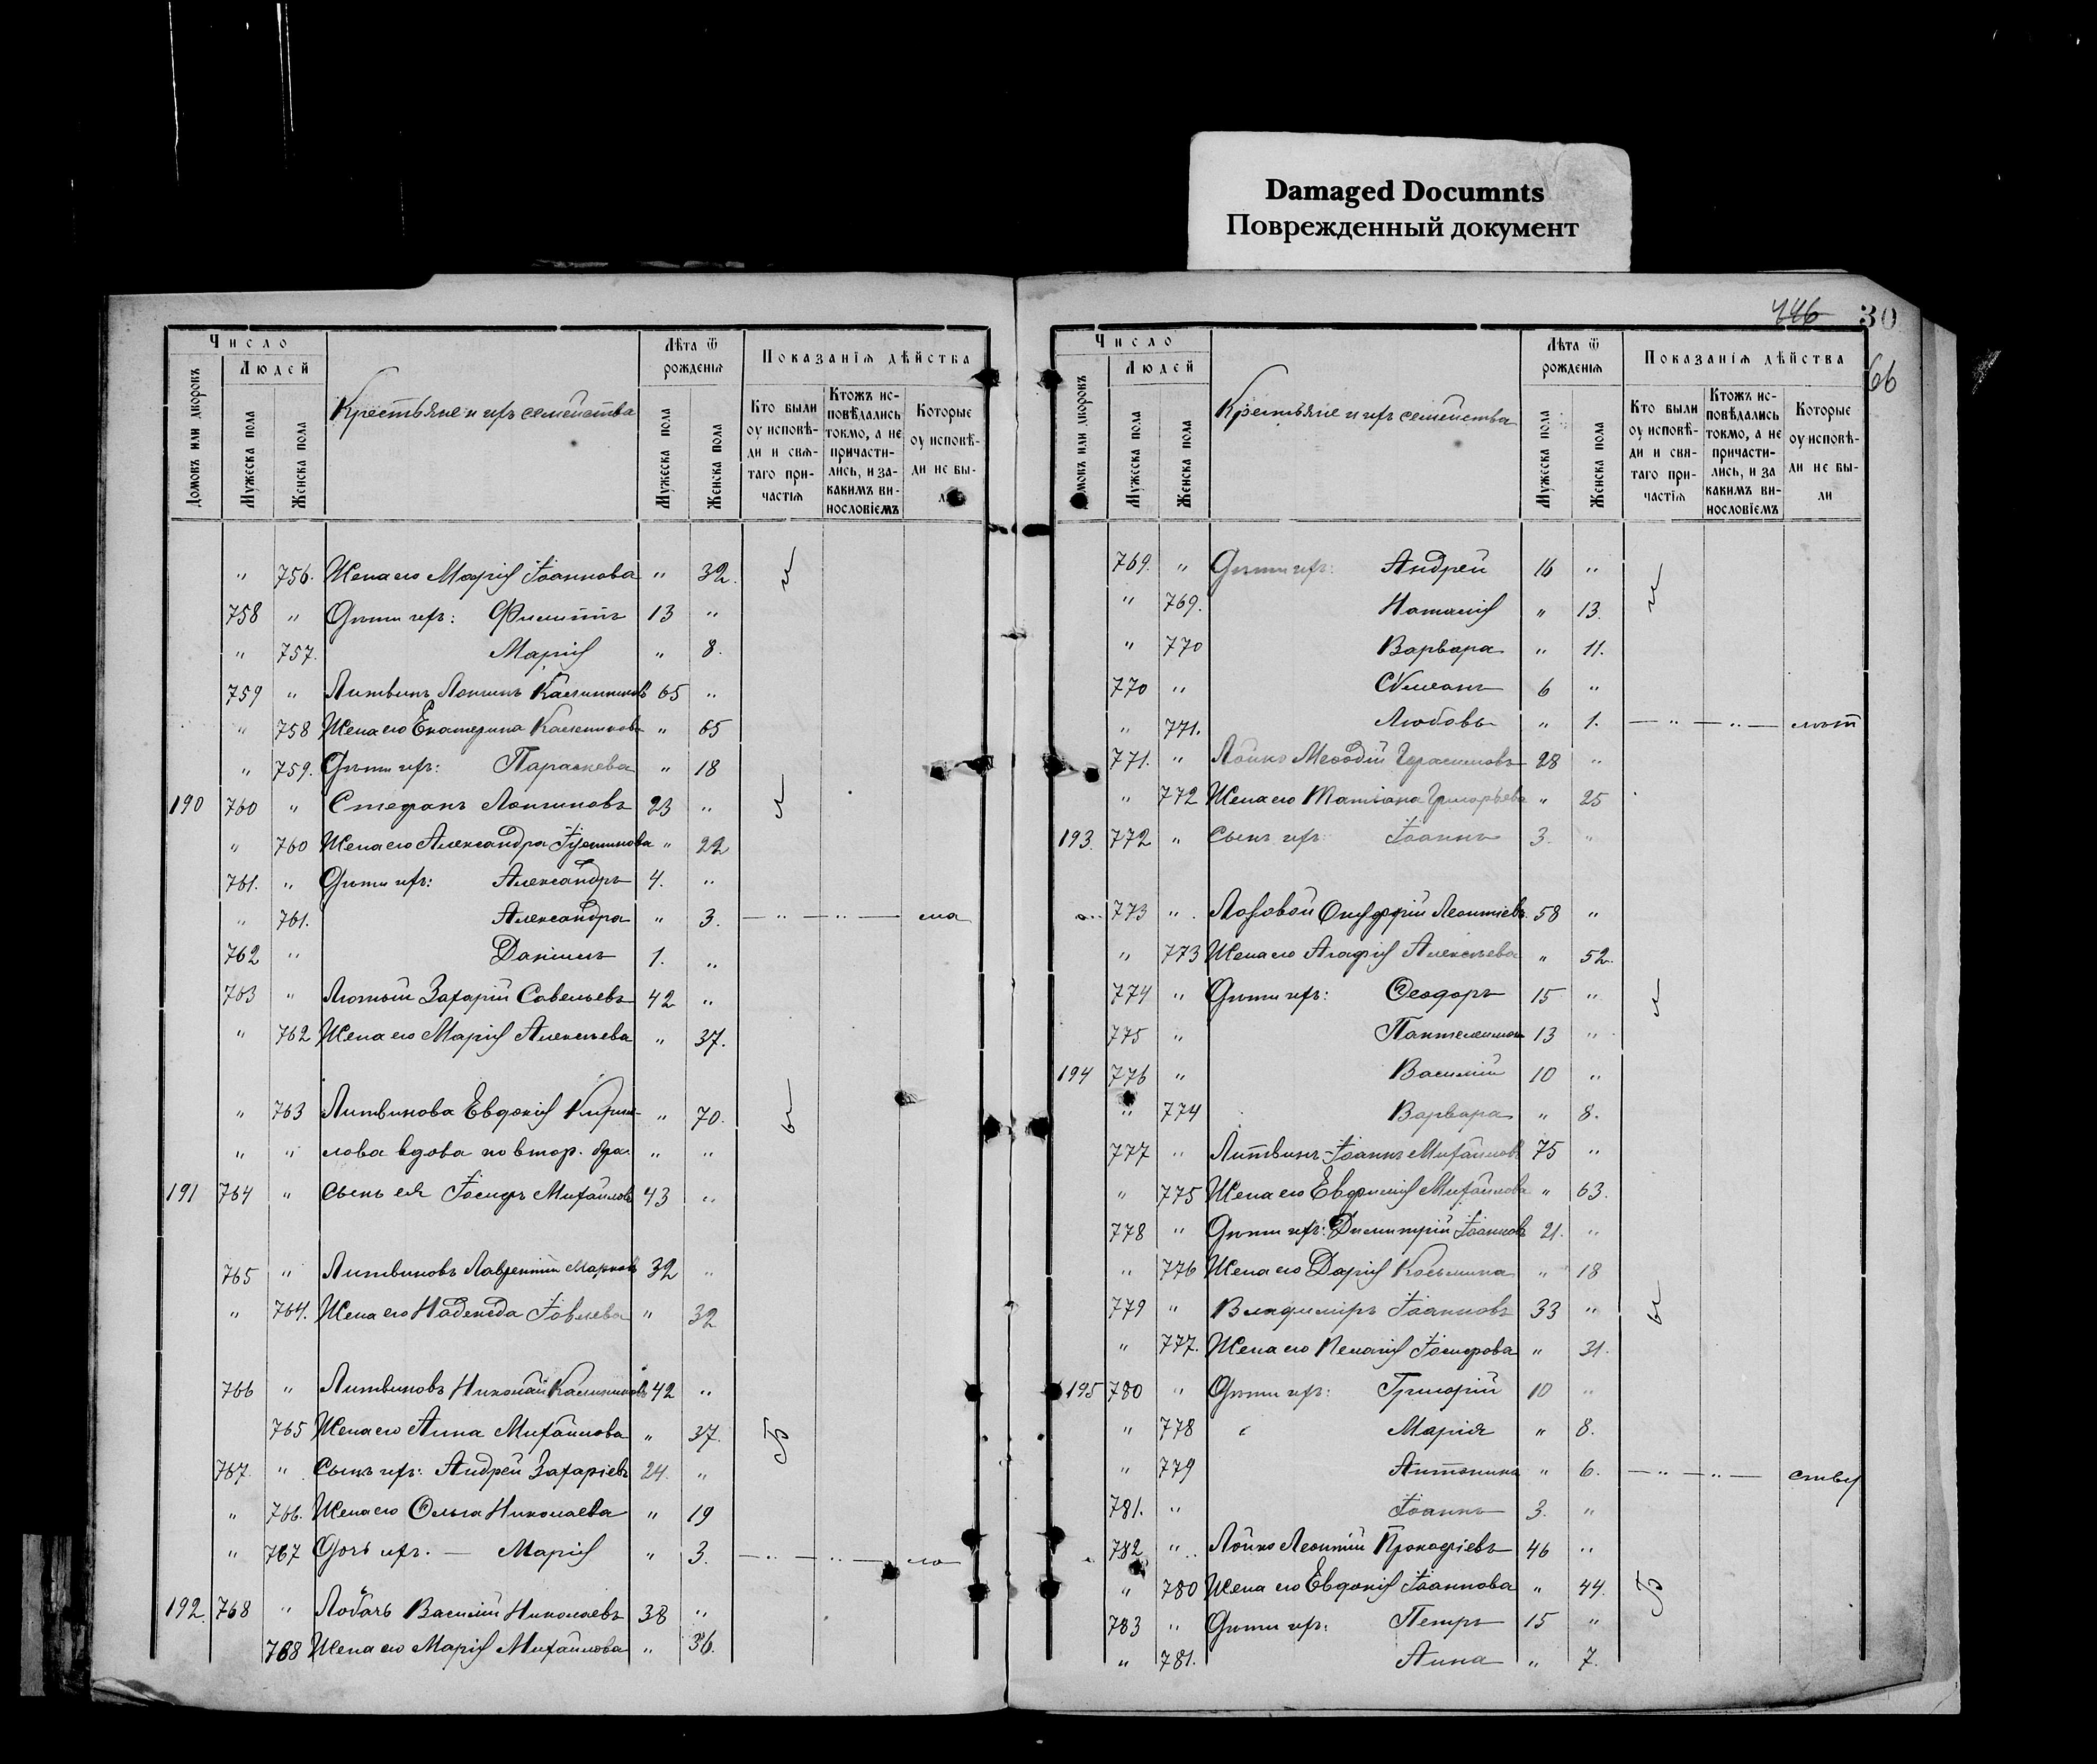 Damaged Documnts
Поврежденный документ
446 30
66
Число
Людей
Домовъ или дворовъ
Мужеска пола
Женска пола
Крестьяне и ихъ семейства
Лѣта ѿ рожденїѧ
Мужеска пола
Женска пола
Показанїѧ дѣйства
Кто были оу исповѣ-
ди и свѧ-
таго при-
частїѧ
Ктожъ ис-
повѣдались
токмо, а не
причасти-
лись, и за-
какимъ ви-
нословїемъ
Которые
оу исповѣ-
ди не бы-
ли
" 756. Жена его Марія Іоаннова " 32.
758 " Дѣти ихъ: Филиппъ 13 "
" 757. Марія " 8.
759 " Литвинъ Логинъ Калинниковъ 65 "
" 758 Жена его Екатерина " 65
" 759. Дѣти ихъ: Параскева " 18
190 760 " Стефанъ Логиновъ 23 "
" 760 Жена его Александра Іустинова " 22
761. " Дѣти ихъ: Александръ 4. "
" 761. Александра " 3. — " — " — ма
762 " Даніилъ 1. "
763 " Лютый Захарій Савельевъ 42 "
" 762 Жена его Марія Алексѣева " 37.
" 763 Литвинова Евдокія Кирил- " 70.
" " лова вдова по втор. бра. " "
191 764 " Сынъ ея Іосифъ Михайловъ 43 "
765 " Литвиновъ Лаврентій Марковъ 32 "
" 764. Жена его Надежда Іовлева " 32
766 " Литвиновъ Николай Калинниковъ 42 "
765 Жена его Анна Михайлова " 37.
767. " Сынъ ихъ: Андрей Захаріевъ 24. "
" 766. Жена его Ольга Николаева " 19
" 767 Дочь ихъ. — Марія " 3. — " — " — ло
192. 768 " Лобачъ Василій Николаевъ 38 "
768 Жена его Марія Михайлова " 36.
Число
Людей
Домовъ или дворовъ
Мужеска пола
Женска пола
Крестьяне и ихъ семейства
Лѣта ѿ рожденїѧ
Мужеска пола
Женска пола
Показанїѧ дѣйства
Кто были
оу исповѣ-
ди и свѧ-
таго при-
частїѧ
Ктожъ ис-
повѣдались
токмо, а не
причасти-
лись, и за
какимъ ви-
нословїемъ
Которые
оу исповѣ-
ди не бы-
ли
769. " Дѣти ихъ: Андрей 16 "
" 769. Наталія " 13.
" 770 Варвара " 11.
770 " 6 "
" 771. Любовь " 1. — " — " — лѣт
771. " Лойко Меѳодій Герасимовъ 28 "
" 772 Жена его Татіана Григорьева " 25
193. 772 " Сынъ ихъ Іоаннъ 3. "
773 " Лозовой Онуфрій Леонтіевъ 58 "
" 773 Жена его Агафія Алексѣева " 52.
774 " Дѣти ихъ: Ѳеодоръ 15 "
775 " Пантелеимонъ 13 "
194 776 " Василій 10 "
" 774 Варвара " 8.
777 " Литвинъ Іоаннъ Михайловъ 75 "
" 775 Жена его Евфимія Михайлова " 63.
778 " Дѣти ихъ: Димитрій Іоанновъ 21. "
" 776 Жена его Дарія Косьмина " 18
779 " Владиміръ Іоанновъ 33 "
" 777. Жена его Пелагія Іосифова " 31.
195 780 " Дѣти ихъ: Григорій 10 "
" 778 Марія " 8.
" 779 Антонина " 6. — " — " — ству
781. " Іоаннъ 3. "
782 " Лойко Леонтій Прокофіевъ 46 "
" 780 Жена его Евдокія Іоаннова " 44.
783 " Дѣти ихъ: Петръ 15 "
" 781. Анна " 7.